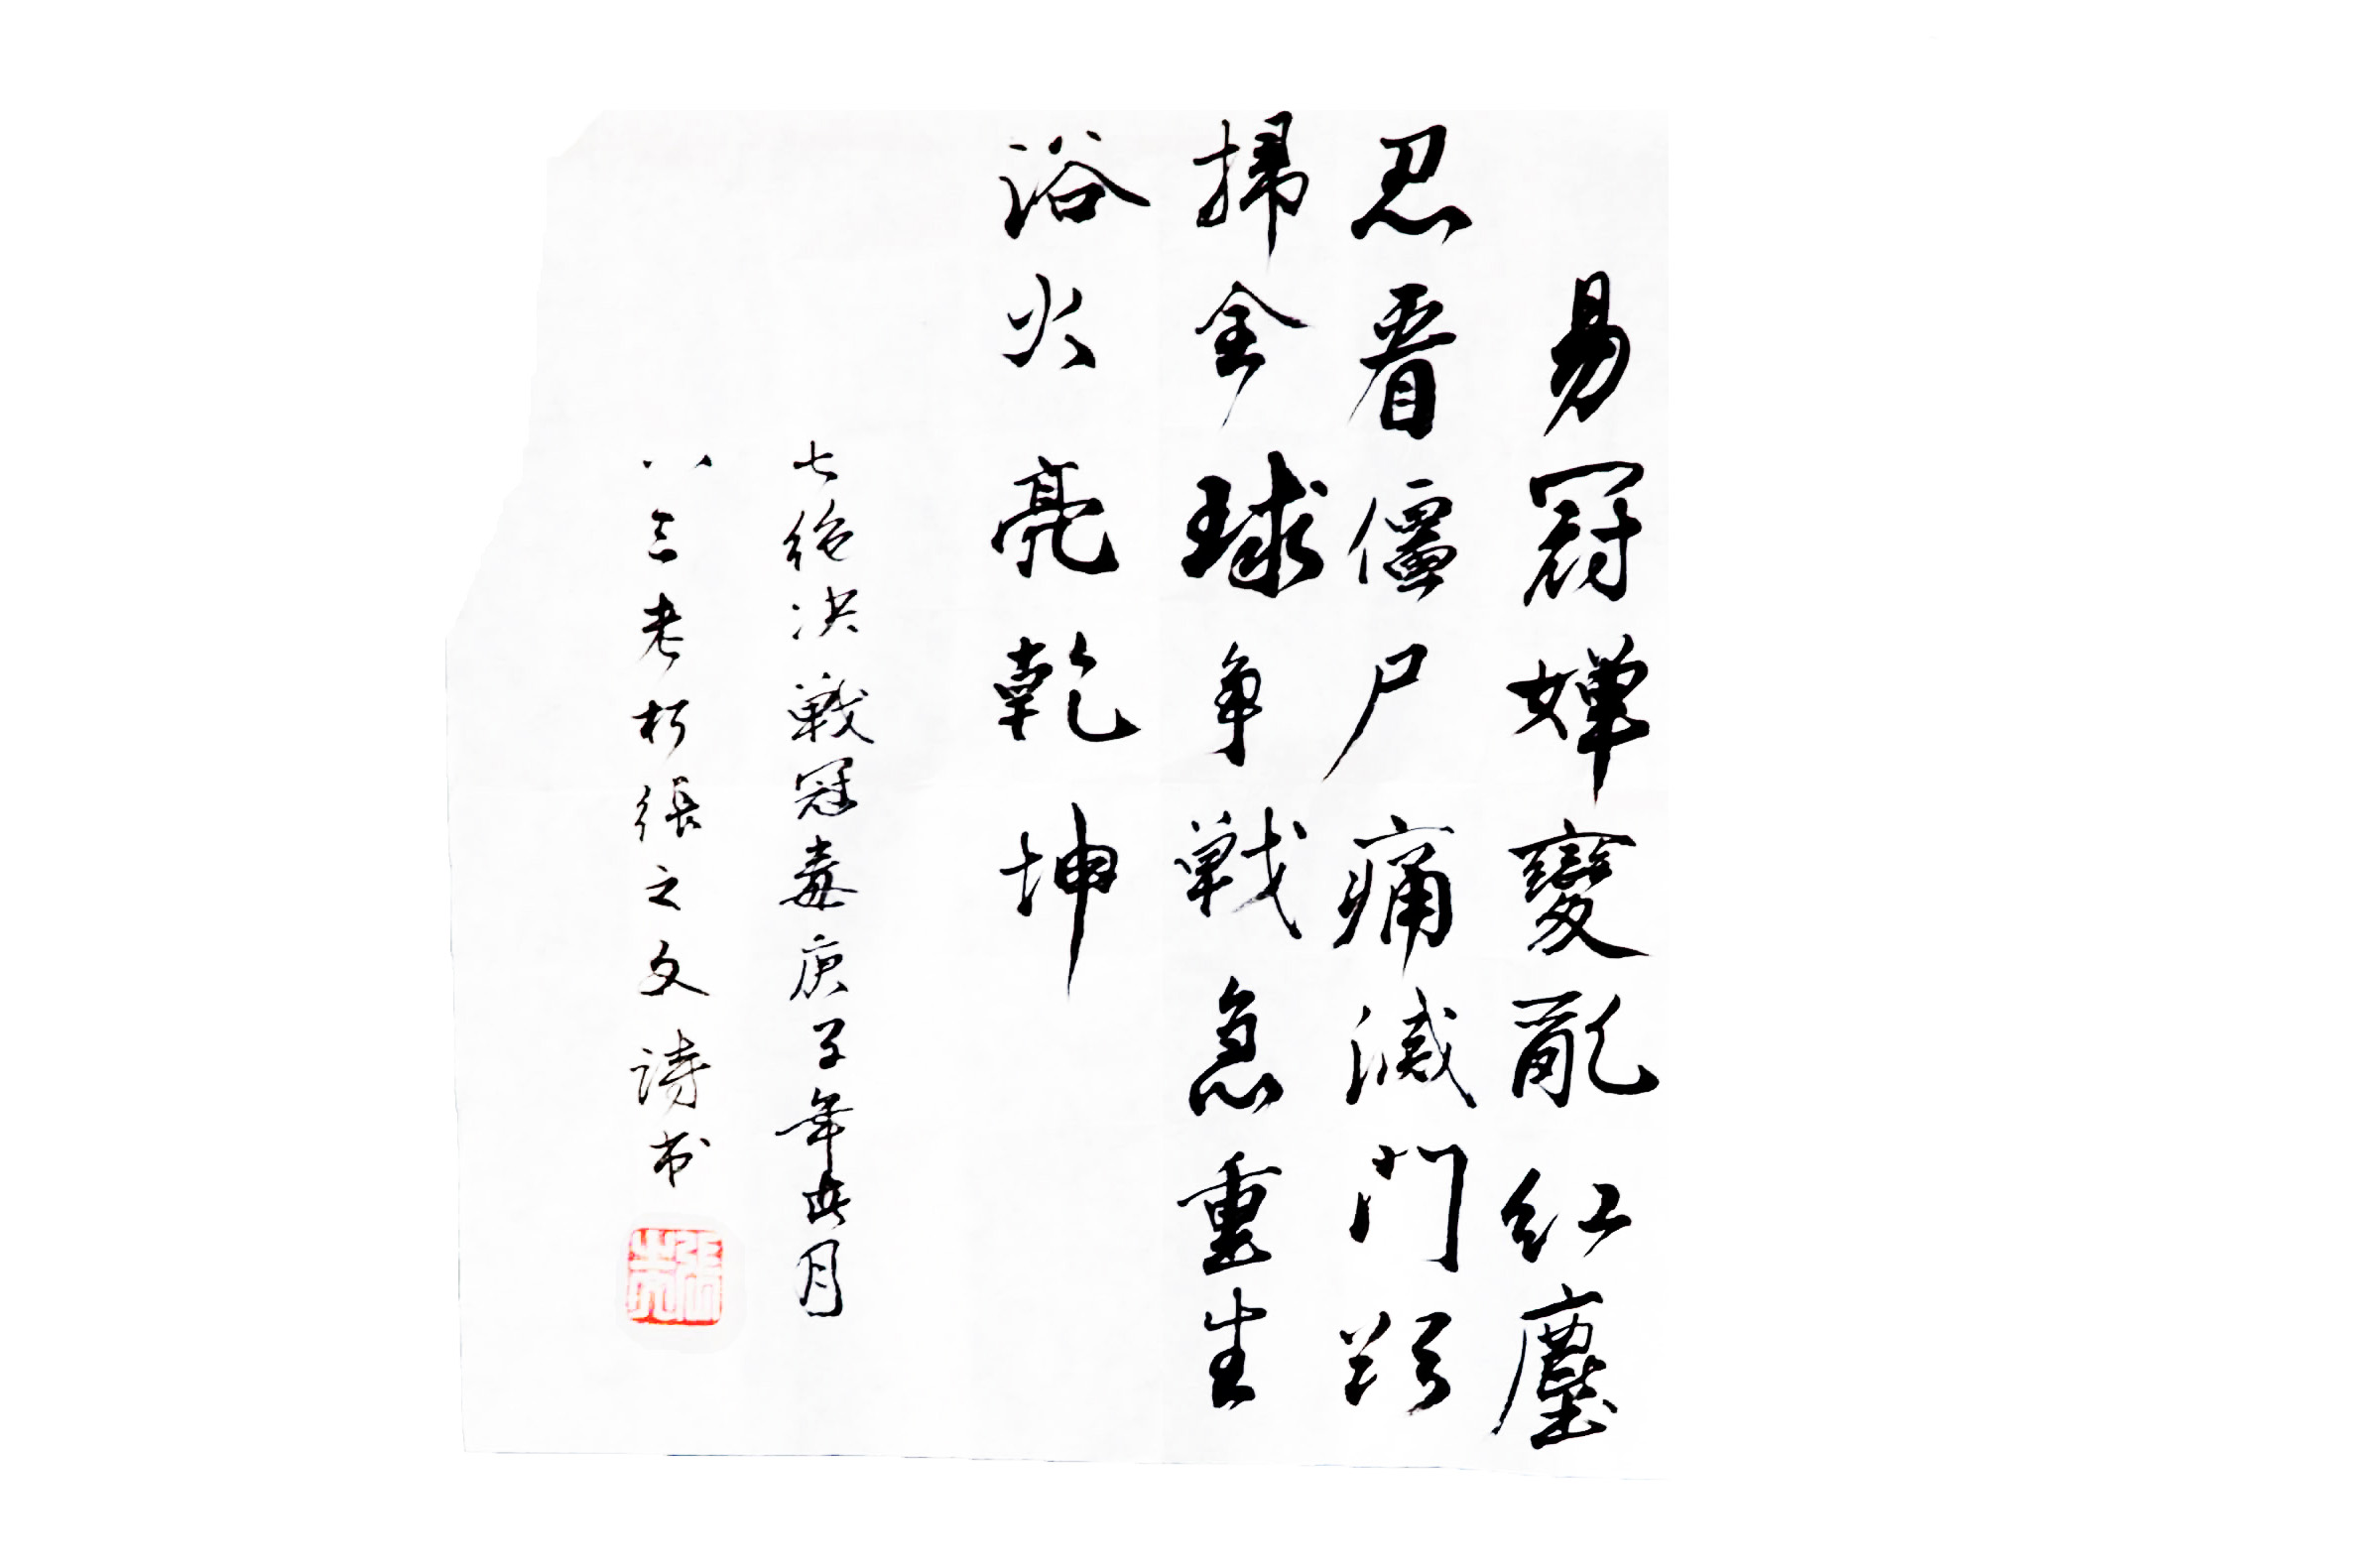 易冠嬋變亂红塵
忍看僵尸痛滅門
掃全球争戦急重生
浴火亮乾坤
七绝决戰冠毒庚子年月
八三老朽張之文詩书